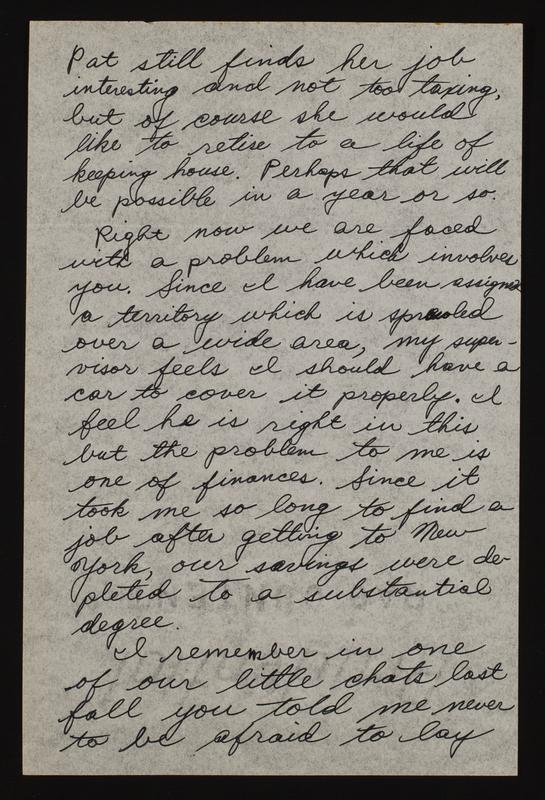 Pat still finds her job
interesting and not too taxing,
but of course she would
like to retire to a life of
keeping house. Perhaps that will
be possible in a year or so.
Right now we are faced
with a problem which involves
you. Since I have been assigned
a territory which is sprawled
over a wide area, my super-
visor feels I should have a
car to cover it properly. I
feel he is right in this
but the problem to me is
one of finances. Since it
took me so long to find a
job after getting to New
York, our savings were de-
pleted to a substantial
degree.
I remember in one
of our little chats last
fall you told me never
to be afraid to lay